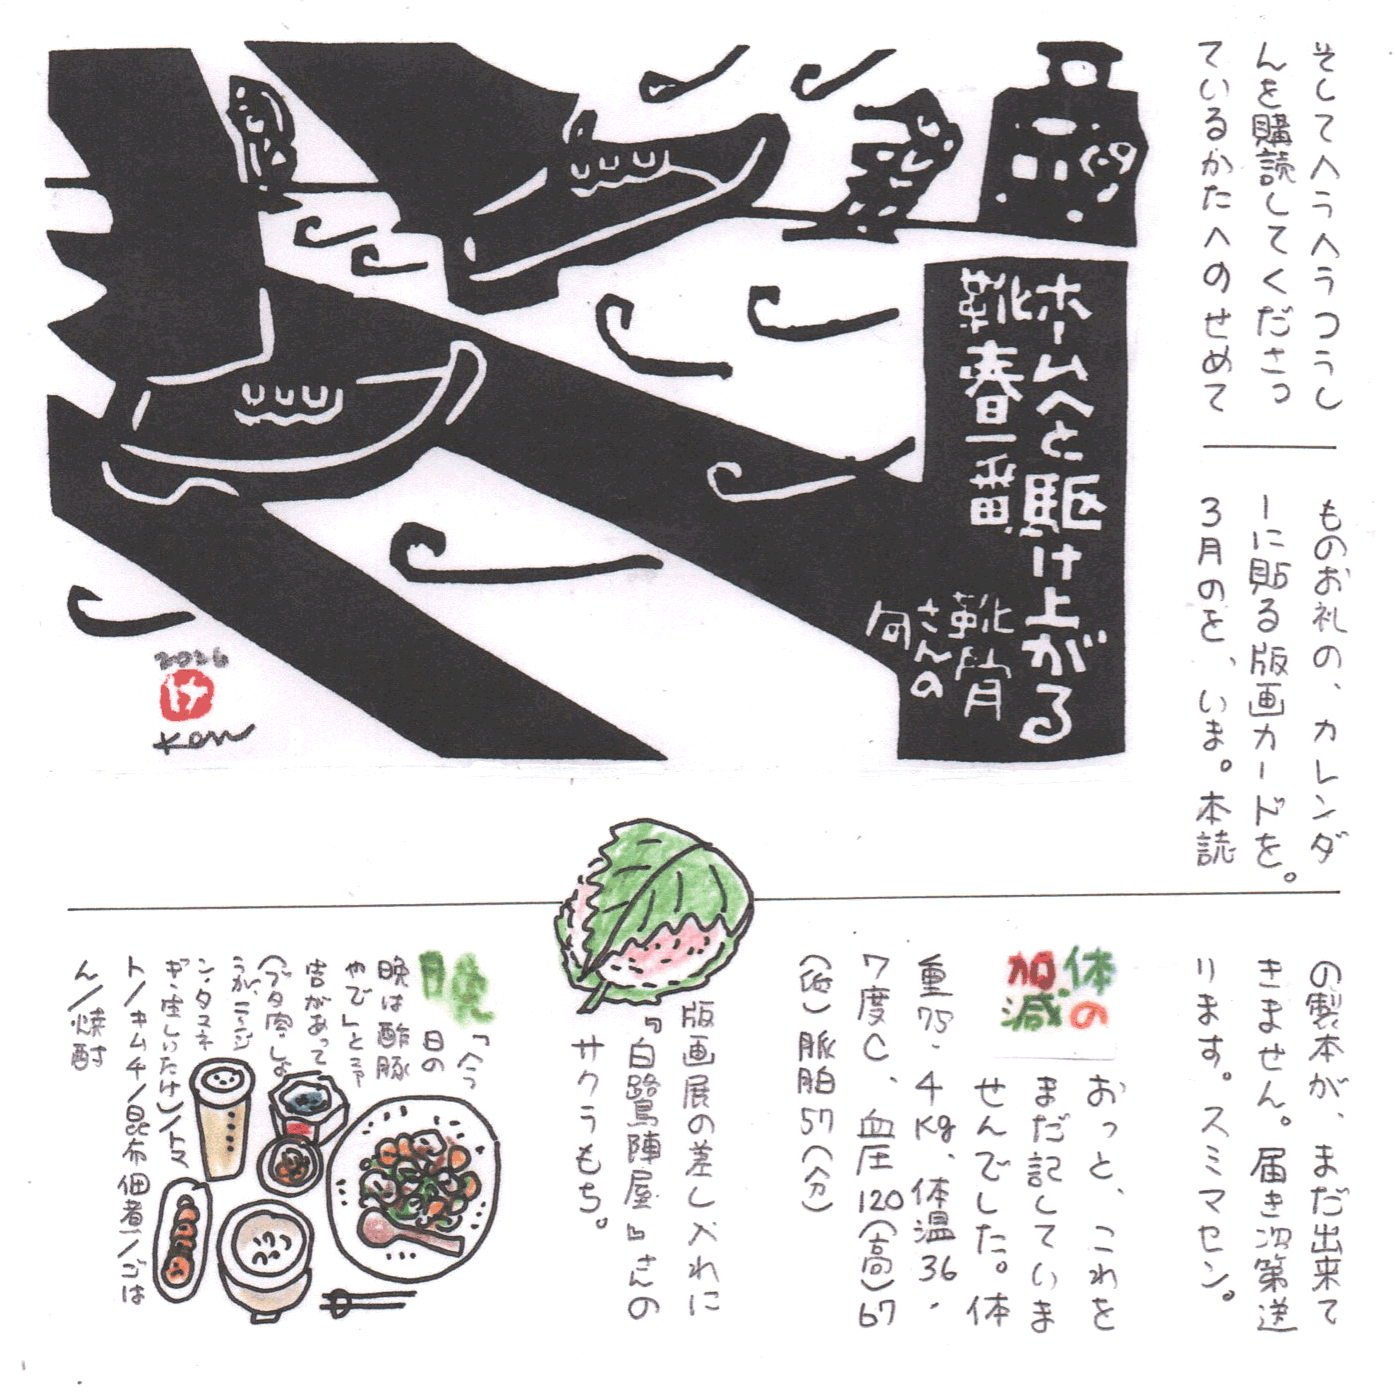 そしてへうへうつうし
んを購読してくださっ
ているかたへのせめて
ものお礼の、カレンダ
ーに貼る版画カードを。
3月のを、いま。本読
の製本が、まだ出来て
きません。届き次第送
ります。スミマセン。
ホームへと駆け上がる
靴春一番
靴箭
さんの
句
2026
け
Kan
体の
加減
おっと、これを
まだ記していま
せんでした。体
重75.4kg、体温36.
7度C、血圧120(高)67
(低)脈拍57(分)
版画展の差し入れに
『白鷺陣屋』さんの
サクラもち。
晩
「今
日の
晩は酢豚
やで」と予
告があって
(ブタ肉・しょ
うが、ニンジ
ン、タマネ
ギ・生しいたけ)/トマ
ト/キムチ/昆布佃煮/ごは
ん/焼酎